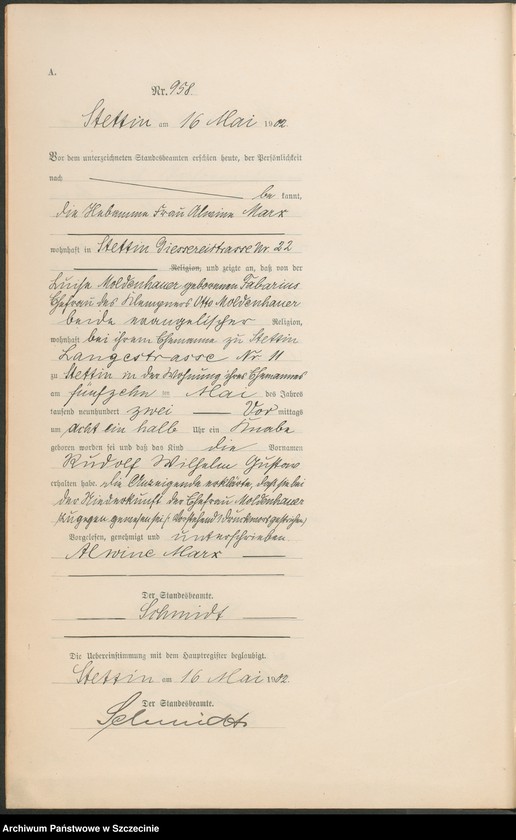 A.
Nr. 958.
Stettin am 16 Mai 1902.
Vor dem unterzeichneten Standesbeamten erschien heute, der Persönlichkeit
nach
be kannt,
die Hebamme Frau Alwine Marx
wohnhaft in Stettin Giessereistrasse Nr. 22
Religion, und zeigte an, daß von der
Luise Moldenhauer geborenen Fabarius
Ehefrau des Klempners Otto Moldenhauer
beide evangelischer Religion,
wohnhaft bei ihrem Ehemanne zu Stettin
Langestrasse Nr 11
zu Stettin in der Wohnung ihres Ehemannes
am fünfzehn ten Mai des Jahres
tausend neunhundert zwei Vor mittags
um acht ein halb Uhr ein Knabe
geboren worden sei und daß das Kind die Vornamen
Rudolf Wilhelm Gustav
erhalten habe. Die Anzeigende erklärte, daß sie bei
der Niederkunft der Ehefrau Moldenhauer
zugegen gewesen sei. Vorstehend 1 Druckwort gestrichen
Vorgelesen, genehmigt und unterschrieben
Alwine Marx
Der Standesbeamte.
Schmidt
Die Uebereinstimmung mit dem Hauptregister beglaubigt.
Stettin am 16 Mai 1902.
Der Standesbeamte.
Schmidt
Archiwum Państwowe w Szczecinie